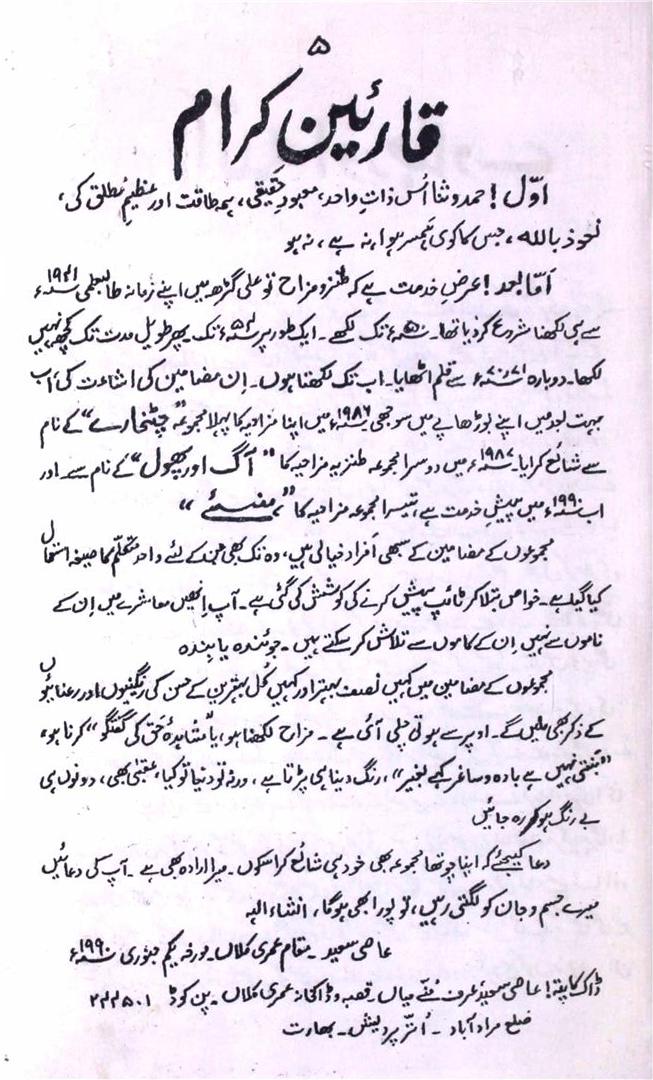 ۵
قارئین کرام
اوّل! حمد و ثنا اُس ذاتِ واحد، معبودِ حقیقی، ہمہ طاقت اور عظیمِ مطلق کی،
نعوذ باللہ، جس کا کوئی ہمسر ہوا، نہ ہے، نہ ہو
امّا بعد! عرضِ خدمت ہے کہ طنز و مزاح تو علی گڑھ میں اپنے زمانہ طالبعلمی ۱۹۴۱ء
سے ہی لکھنا شروع کر دیا تھا۔ ۵۰ء تک لکھے۔ ایک طور پر ۵۲ء تک۔ پھر طویل مدت تک کچھ نہیں
لکھا۔ دوبارہ ۷۱-۷۰ء سے قلم اٹھایا۔ اب تک لکھتا ہوں۔ اِن مضامین کی اشاعت کی اب
بہت بعد میں اپنے بوڑھاپے میں سوجھی ۱۹۸۶ء میں اپنا مزاحیہ کا پہلا مجموعہ "چٹخارے" کے نام
سے شائع کرایا۔ ۱۹۸۷ء میں دوسرا مجموعہ طنزیہ مزاحیہ کا "آگ اور پھول" کے نام سے۔ اور
اب ۱۹۹۰ء میں پیشِ خدمت ہے، تیسرا مجموعہ مزاحیہ کا "ہنسئے"
مجموعوں کے مضامین کے سبھی اَفراد خیالی ہیں، وہ تک بھی جن کے لئے واحد متکلّم کا صیغہ استعمال
کیا گیا ہے۔ خواص بتلا کر ٹائپ پیش کرنے کی کوشش کی گئی ہے۔ آپ اِنھیں معاشرے میں اِن کے
ناموں سے نہیں اِن کے کاموں سے تلاش کر سکتے ہیں۔ جوئندہ یابندہ
مجموعوں کے مضامین میں کہیں نصف بہتر اور کہیں کُل بہترین کے حسن کی رنگینیوں اور رعنائیوں
کے ذکر بھی ملیں گے۔ اوپر سے ہوتی چلی آئی ہے۔ مزاح لکھنا ہو، یا "مُشاہدۂ حق کی گفتگو" کرنا ہو،
"بنتی نہیں ہے بادہ و ساغر کہے بغیر"، رنگ دینا ہی پڑتا ہے، ورنہ تو دنیا تو کیا، عقبیٰ بھی، دونوں ہی
بے رنگ ہو کر رہ جائیں
دعا کیجئے کہ اپنا چوتھا مجموعہ بھی خود ہی شائع کرا سکوں۔ میرا ارادہ بھی ہے۔ آپ کی دعائیں
میرے جسم و جان کو لگتی رہیں، تو پورا بھی ہوگا، انشاء اللہ
عاصی سعید۔ مقام عمری کلاں۔ مورخہ یکم جنوری ۱۹۹۰ء
ڈاک کا پتہ! عاصی سعید عرف مُنّے میاں۔ قصبہ و ڈاکخانہ عمری کلاں۔ پن کوڈ ۲۴۴۵۰۱
ضلع مراد آباد۔ اُتّر پردیش۔ بھارت